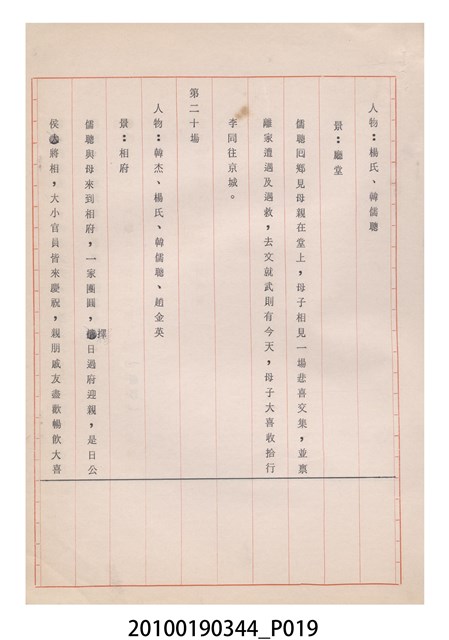 人物：楊氏、韓儒聰
景：廳堂
儒聰囘鄉見母親在堂上，母子相見一場悲喜交集，並禀
離家遭遇及遇救，去文就武則有今天，母子大喜收拾行
李同往京城。
第二十場
人物：韓杰、楊氏、韓儒聰、趙金英
景：相府
儒聰與母來到相府，一家團圓，擇日過府迎親，是日公
侯將相，大小官員皆來慶祝，親朋戚友盡歡暢飲大喜
20100190344_P019